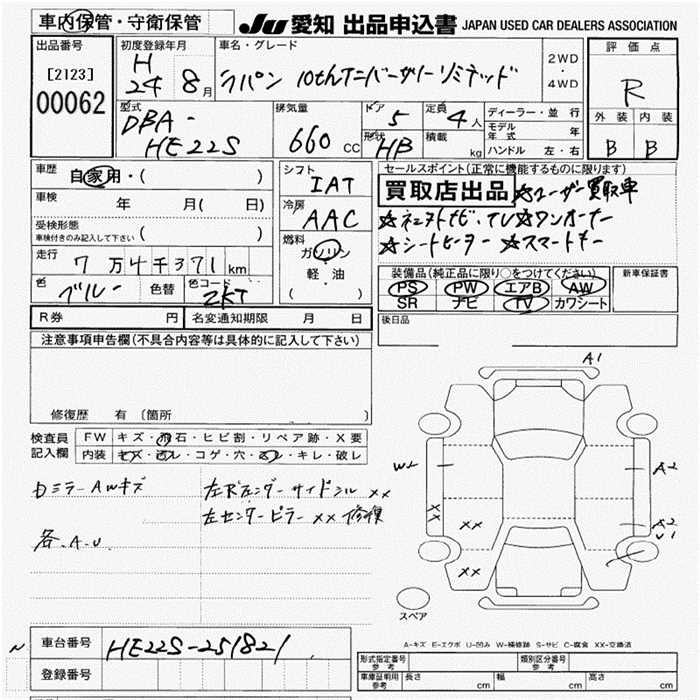 車内保管・守衛保管
JU 愛知 出品申込書 JAPAN USED CAR DEALERS ASSOCIATION
出品番号
[2123]
00062
初度登録年月
H 24 8月
車名・グレード
ラパン 10thアニバーサリーリミテッド
2WD・4WD
評価点
R
外装 内装
B B
型式
DBA-HE22S
排気量
660 CC
ドア 5
形状 HB
定員 4人
積載 kg
ディーラー・並行
モデル年式 年
ハンドル 左・右
車歴
自家用・( )
車検
年 月( 日)
受検形態
車検付きのみ記入して下さい ( )
走行
7万4千371km
色 ブルー 色替 色コード ZKT
シフト
IAT
冷房
AAC
燃料
ガソリン
軽・油
( )
セールスポイント(正常に機能するものに限ります)
買取店出品 ☆ユーザー買取車
☆オーナー
☆シートヒーター ☆スマートキー
装備品(純正品に限り○をつけてください)
PS PW エアB AW
SR ナビ TV カワシート
新車保証書
後日品
R券 円 名変通知期限 月 日
注意事項申告欄(不具合内容等は具体的に記入して下さい)
修復歴 有 〔箇所 〕
検査員記入欄
FW キズ・飛石・ヒビ割・リペア跡・X要
内装 キズ・コゲ・穴・キレ・破レ
ミラーAWキズ
サイドシル XX
左センターピラー XX 修復
各.A.U.
A1
W2
A2
XX
XX
A2
U1
XX
スペア
A-キズ E-エクボ U-凹み W-補修跡 S-サビ C-腐食 XX-交換済
車台番号 HE22S-251821
登録番号
形式指定番号 参考
類別区分番号 参考
車庫証明用 参考 長さ cm 幅 cm 高さ cm